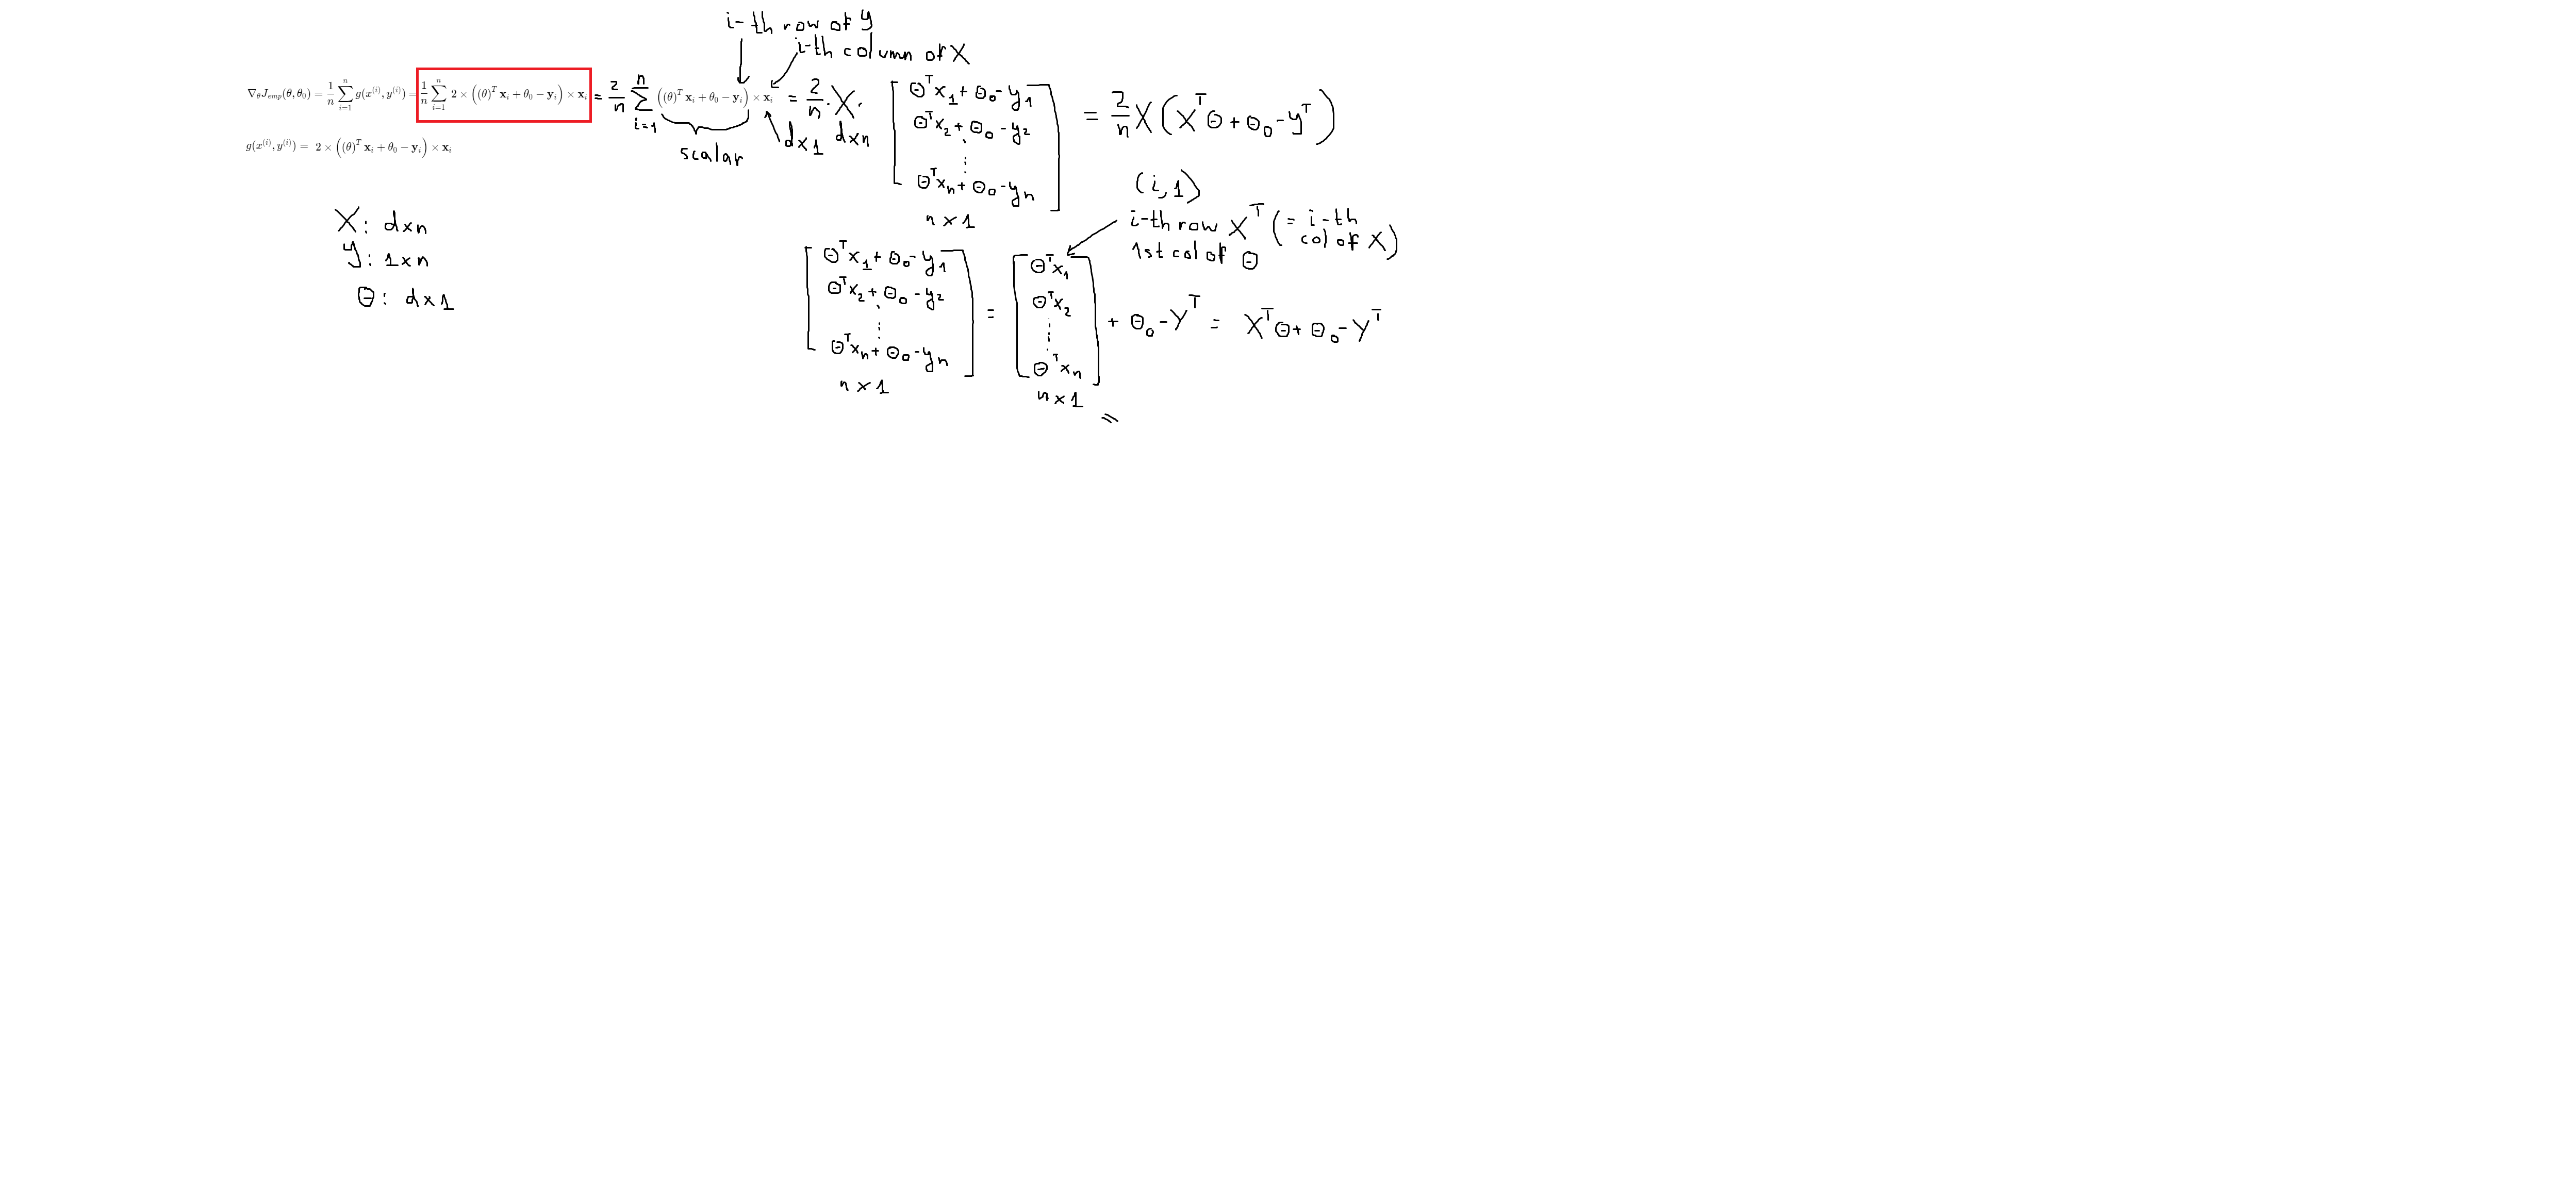 i-th row of y
i-th column of X
∇θJemp(θ, θ0) = 1/n ∑_{i=1}^{n} g(x^(i), y^(i)) = 1/n ∑_{i=1}^{n} 2 × ((θ)^T x_i + θ0 − y_i) × x_i = 2/n ∑_{i=1}^{n} ((θ)^T x_i + θ0 − y_i) × x_i = 2/n · X · [θ^T x_1 + θ0 - y_1
θ^T x_2 + θ0 - y_2
⋮
θ^T x_n + θ0 - y_n] = 2/n X (X^T θ + θ0 - y^T)
scalar
d×1 d×n
n × 1
g(x^(i), y^(i)) = 2 × ((θ)^T x_i + θ0 − y_i) × x_i
X: d×n
y: 1×n
θ: d×1
(i,1)
i-th row X^T (= i-th
col of X)
1st col of θ
[θ^T x_1 + θ0 - y_1
θ^T x_2 + θ0 - y_2
⋮
θ^T x_n + θ0 - y_n] = [θ^T x_1
θ^T x_2
⋮
θ^T x_n] + θ0 - Y^T = X^T θ + θ0 - Y^T
n × 1
n × 1
=